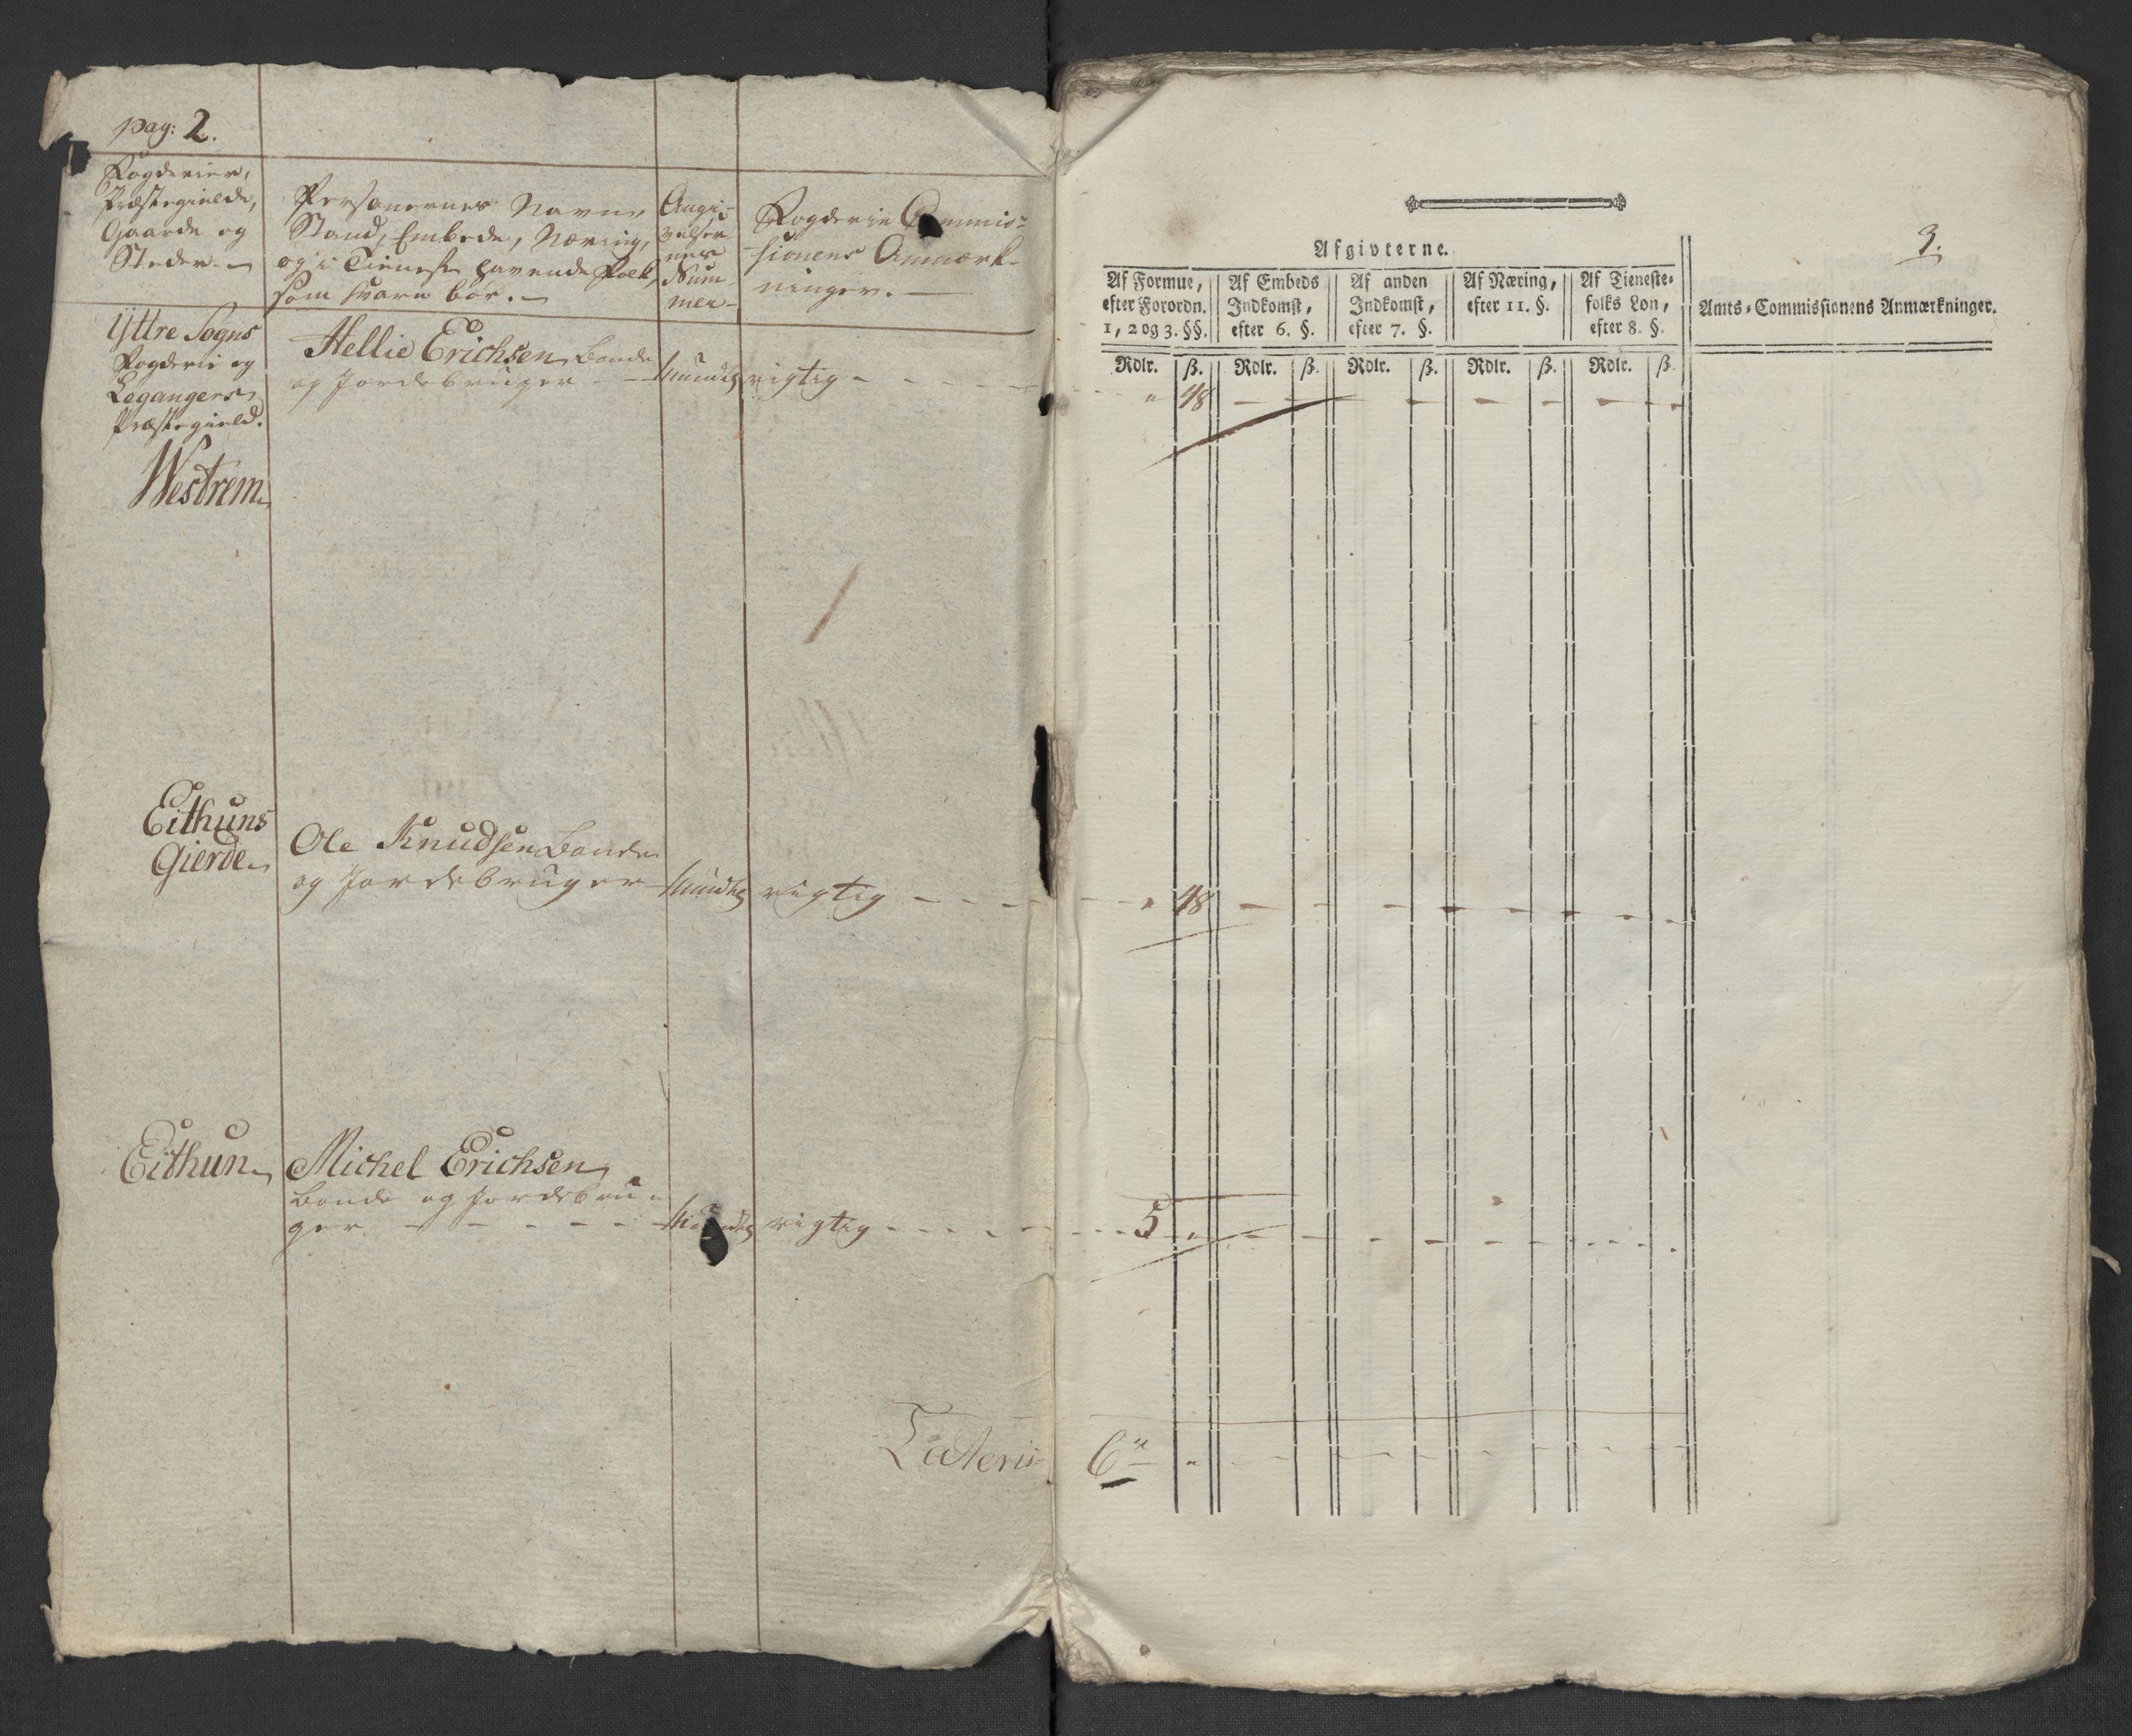 pag: 2.
Fogderier,
Præstegielde,
Gaarde og
Steder. -
Personernes Navne,
Stand, Embede, Næring,
og i Tieneste havende Folk,
som svare bör. -
Angi-
velser
nes
Num-
mer -
Fogderie Commis-
sionens Anmærk-
ninger. -
Yttre Sogns
Fogderie og
Legangers
Præstegield.
Westrem
Hellie Erichsen Bonde
og Jordebruger - - mundtlg rigtig - - - - - -
Eithuns
Gierde
Ole Knudsen Bonde
og Jordebruger - mundtlg rigtig - - - -
Eithun
Michel Erichsen
Bonde og Jordebru-
ger - - - - - - mundtlg rigtig - - - - -
Lateris
3.
Afgivterne.
Af Formue,
efter Forordn.
1, 2 og 3. §§.
Af Embeds
Indkomst,
efter 6. §.
Af anden
Indkomst,
efter 7. §.
Af Næring,
efter 11. §.
Af Tieneste-
folks Lon,
efter 8. §.
Amts-Commissionens Anmærkninger.
Rdlr. ß. Rdlr. ß. Rdlr. ß. Rdlr. ß. Rdlr. ß.
" 48 - - - - - - - -
" 48 - - - - - - - -
5 " - - - - - - - -
6 " - - - - - - - -